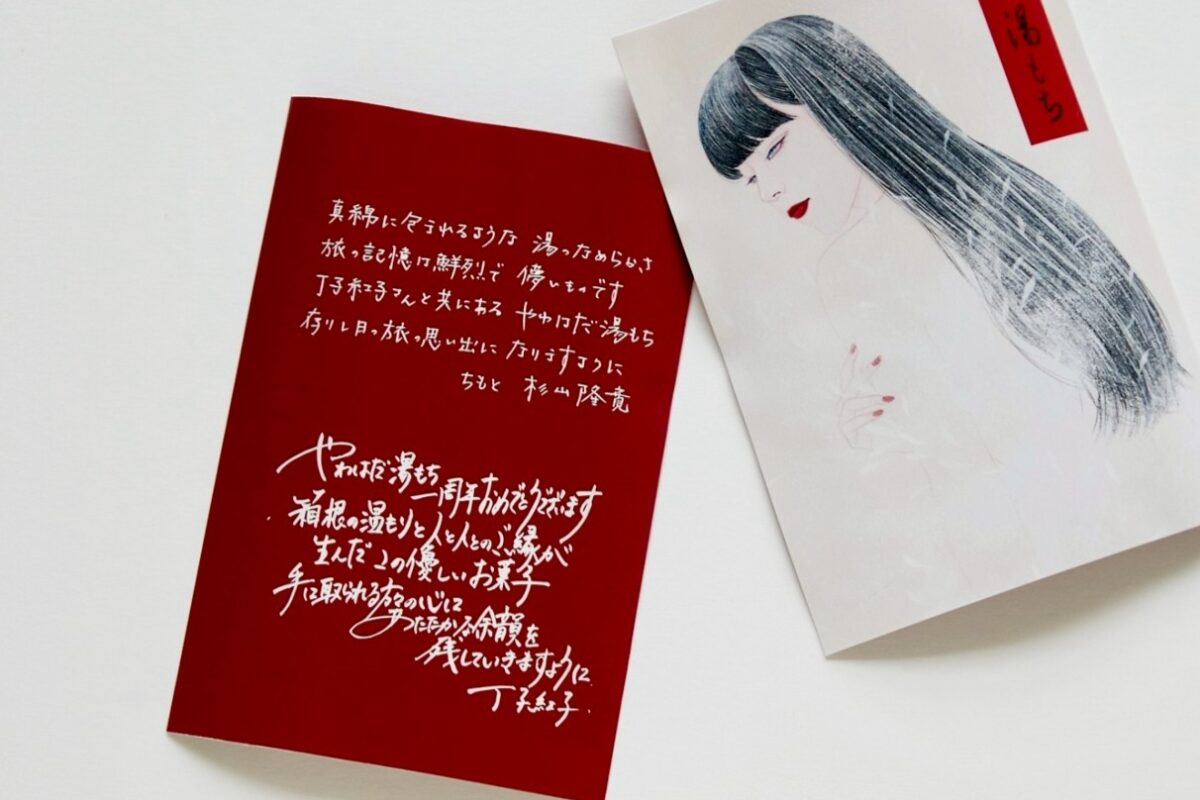 真綿に包まれるような 湯のなめらかさ
旅の記憶は鮮烈で 儚いものです
丁子紅子さんと共にある やわはだ湯もち
在りし日の旅の思い出に なりますように
ちもと 杉山隆寛
やわはだ湯もち
一周年おめでとうございます
箱根の温もりと人と人とのご縁が
生んだこの優しいお菓子
手に取られる方々の心に
あたたかな余韻を
残していきますように
丁子紅子
湯もち